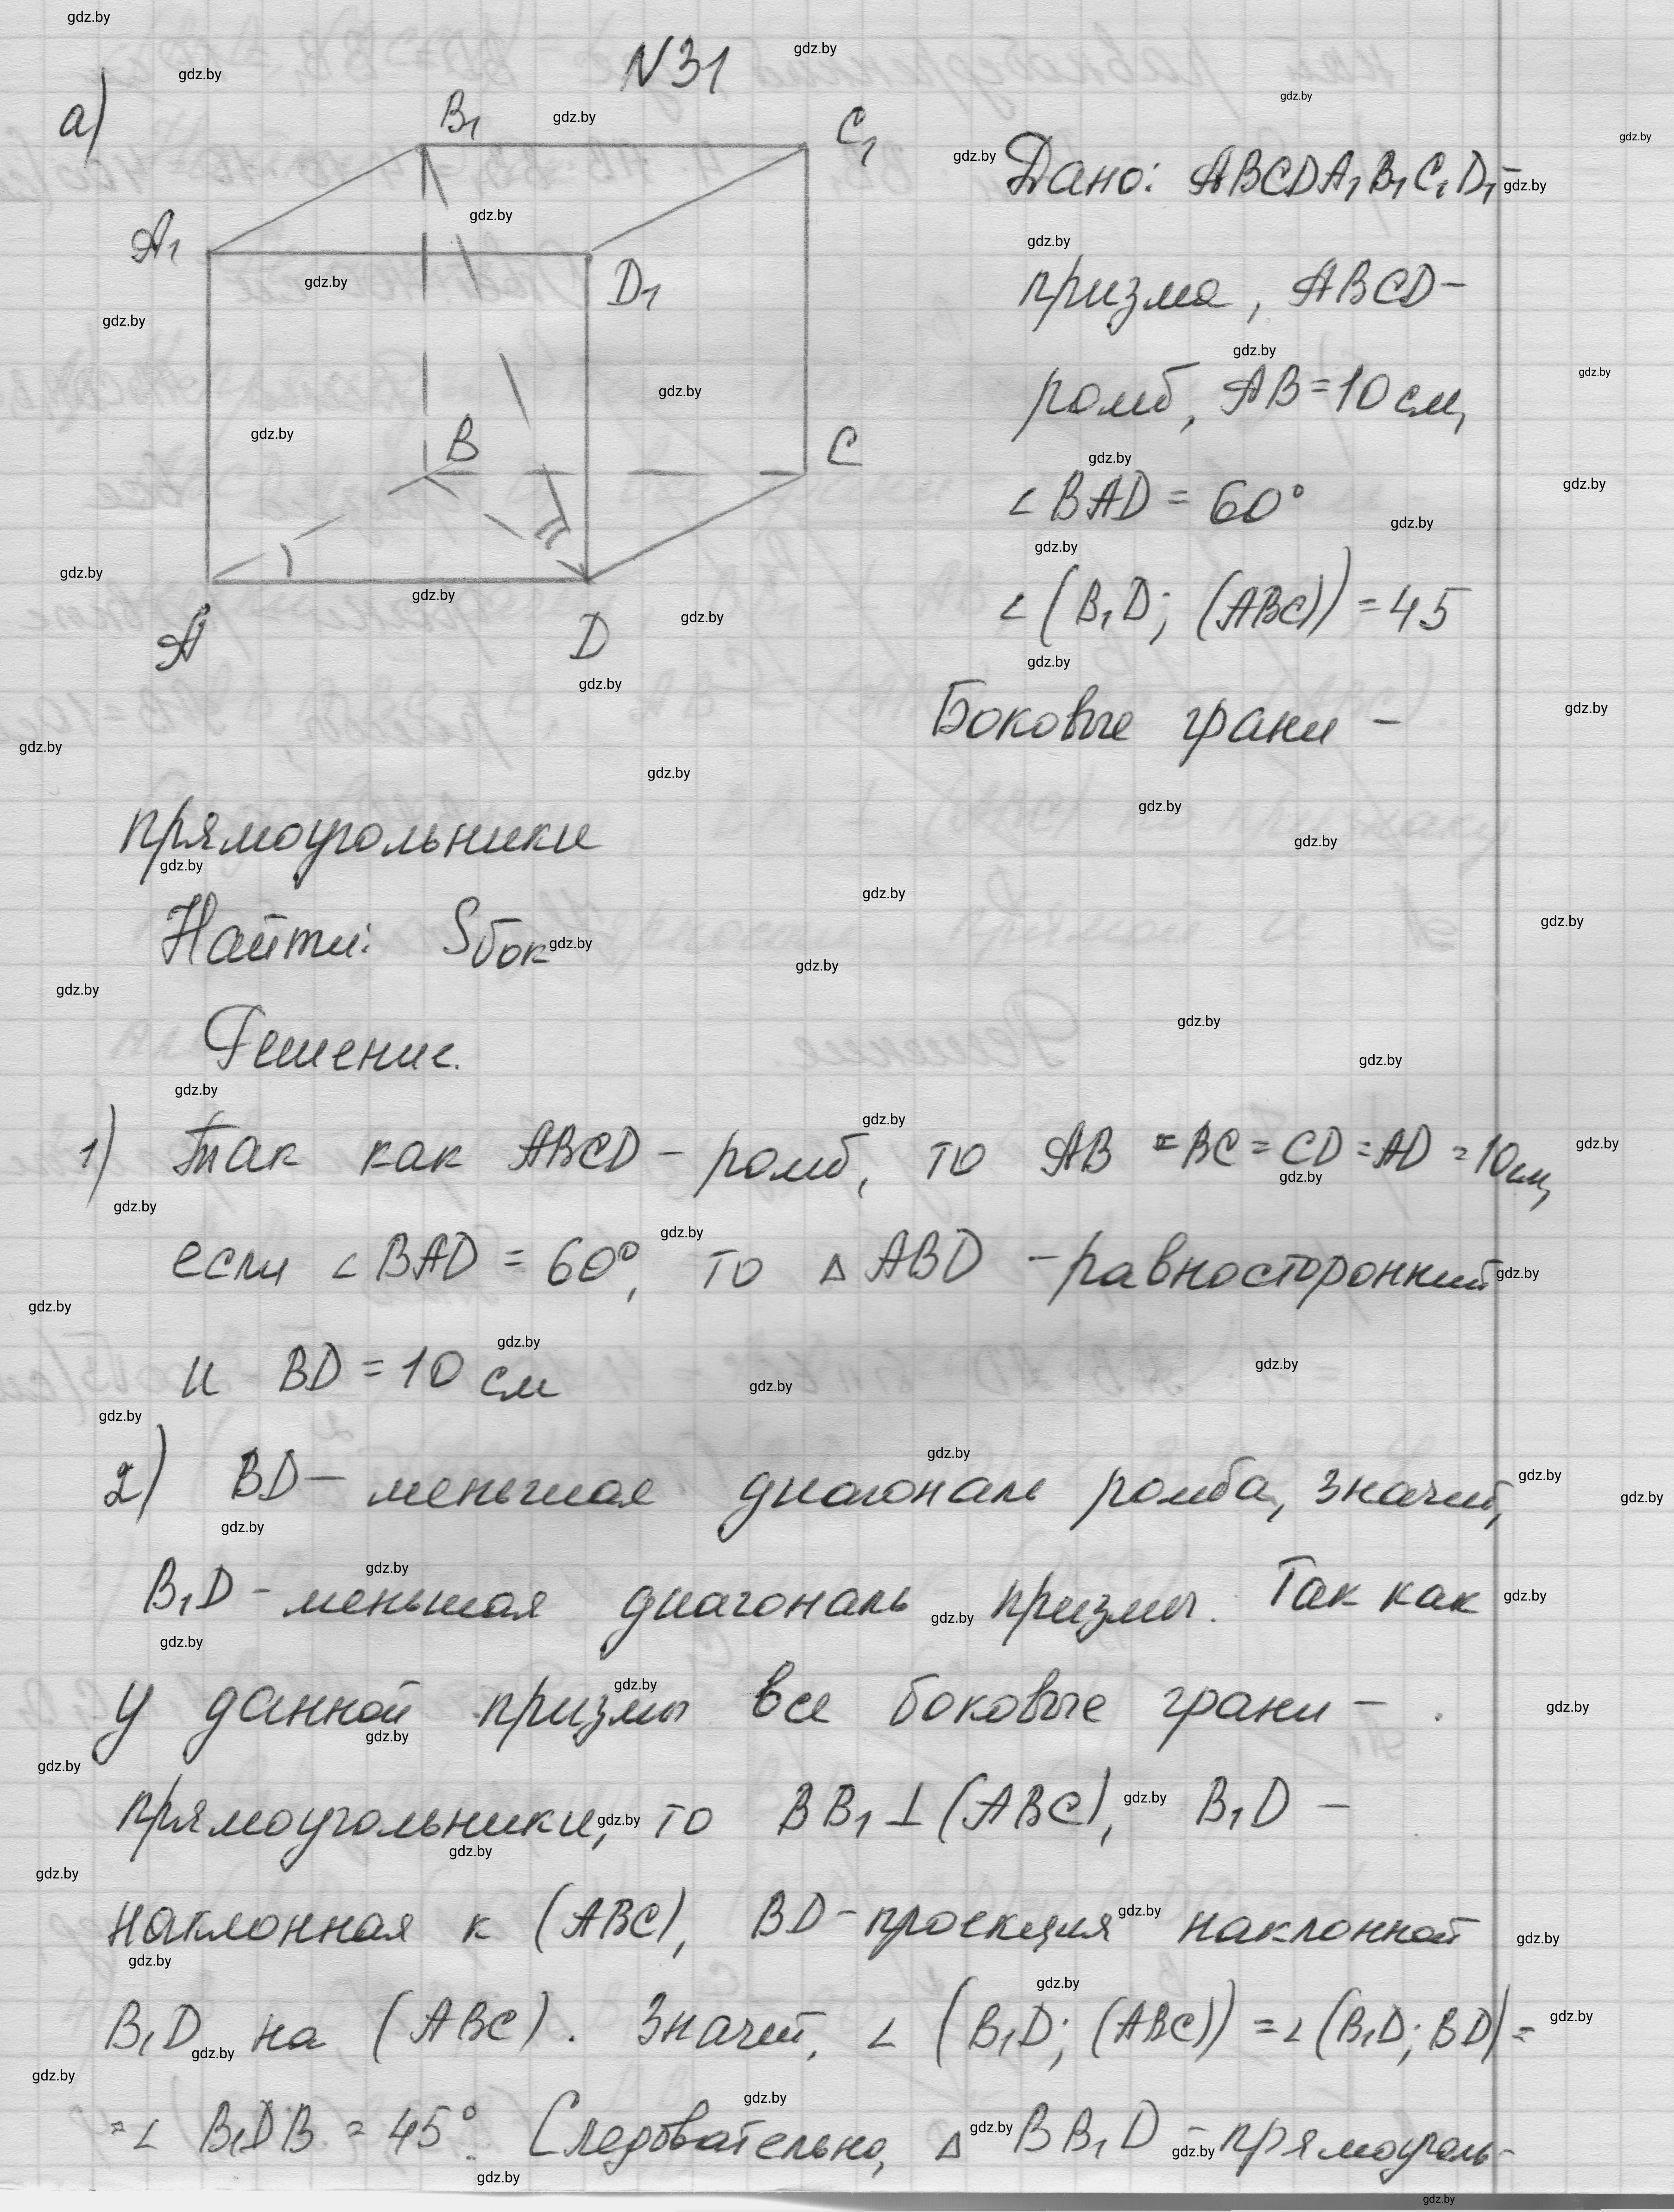 N31
а)
B₁
C₁
A₁
D₁
B
C
A
D
Дано: ABCDA₁B₁C₁D₁ -
призма, ABCD -
ромб, AB = 10 см,
∠BAD = 60°
∠(B₁D; (ABC)) = 45
Боковые грани -
прямоугольники
Найти: Sбок
Решение.
1) Так как ABCD - ромб, то AB = BC = CD = AD = 10 см,
если ∠BAD = 60°, то △ABD - равносторонний
и BD = 10 см
2) BD - меньшая диагональ ромба, значит,
B₁D - меньшая диагональ призмы. Так как
у данной призмы все боковые грани -
прямоугольники, то BB₁ ⊥ (ABC), B₁D -
наклонная к (ABC), BD - проекция наклонной
B₁D на (ABC). Значит, ∠(B₁D; (ABC)) = ∠(B₁D; BD) =
= ∠B₁DB = 45°. Следовательно, △BB₁D - прямоуголь-
gdz.by